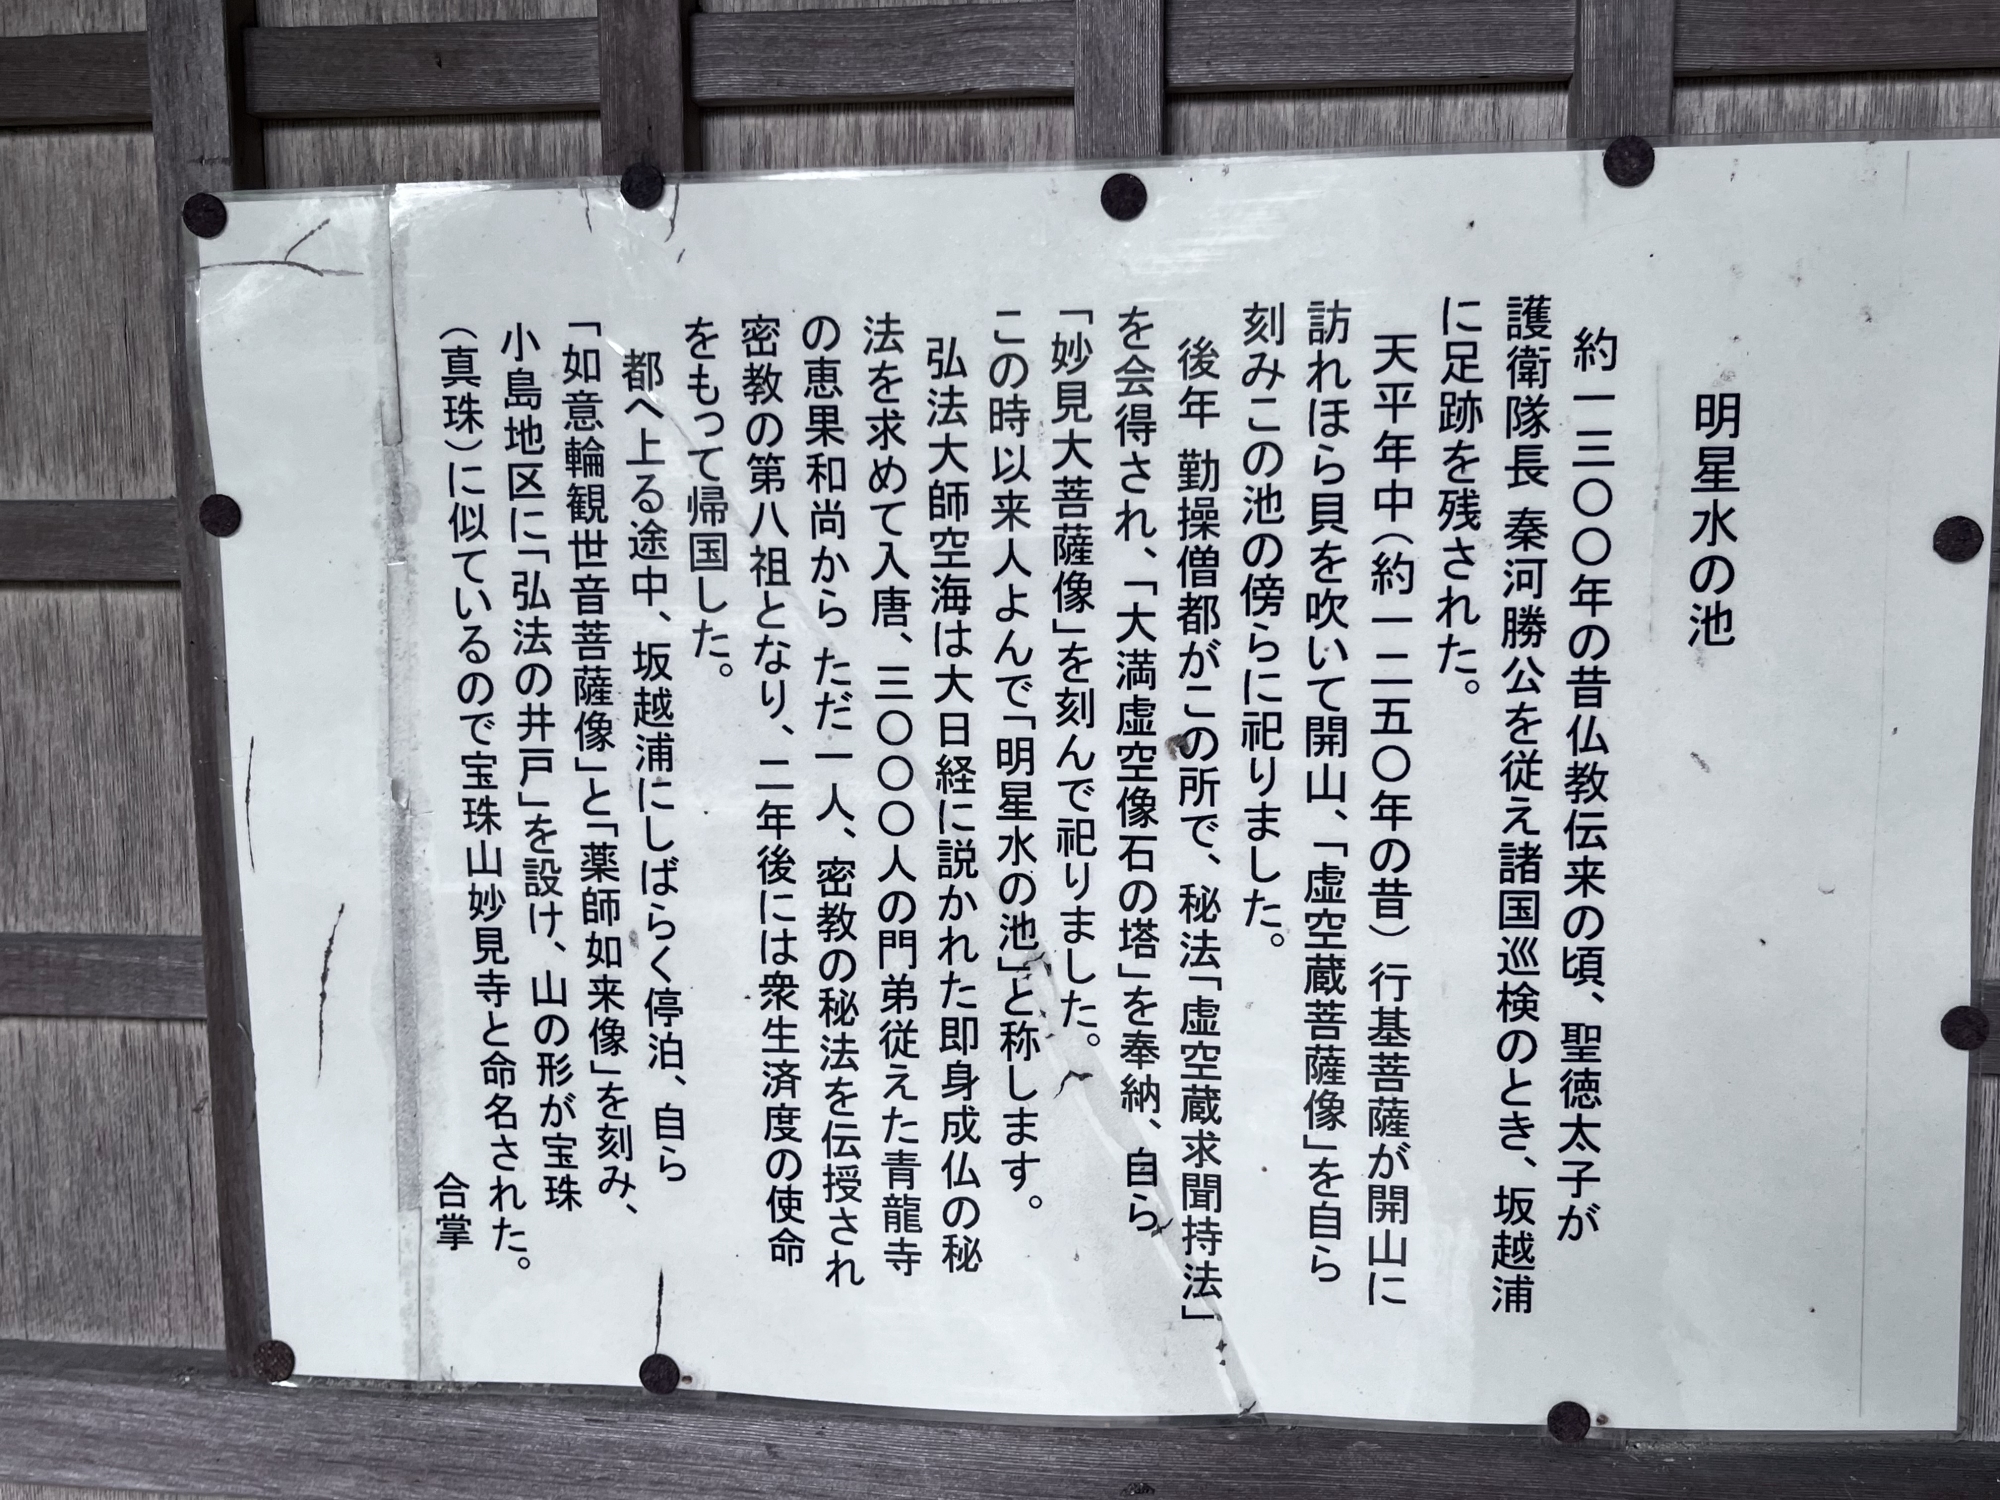 明星水の池
約一三〇〇年の昔仏教伝来の頃、聖徳太子が
護衛隊長 秦河勝公を従え諸国巡検のとき、坂越浦
に足跡を残された。
天平年中（約一二五〇年の昔）行基菩薩が開山に
訪れほら貝を吹いて開山、「虚空蔵菩薩像」を自ら
刻みこの池の傍らに祀りました。
後年 勤操僧都がこの所で、秘法「虚空蔵求聞持法」
を会得され、「大満虚空像石の塔」を奉納、自ら
「妙見大菩薩像」を刻んで祀りました。
この時以来人よんで「明星水の池」と称します。
弘法大師空海は大日経に説かれた即身成仏の秘
法を求めて入唐、三〇〇〇人の門弟従えた青龍寺
の恵果和尚から ただ一人、密教の秘法を伝授され
密教の第八祖となり、二年後には衆生済度の使命
をもって帰国した。
都へ上る途中、坂越浦にしばらく停泊、自ら
「如意輪観世音菩薩像」と「薬師如来像」を刻み、
小島地区に「弘法の井戸」を設け、山の形が宝珠
（真珠）に似ているので宝珠山妙見寺と命名された。
合掌